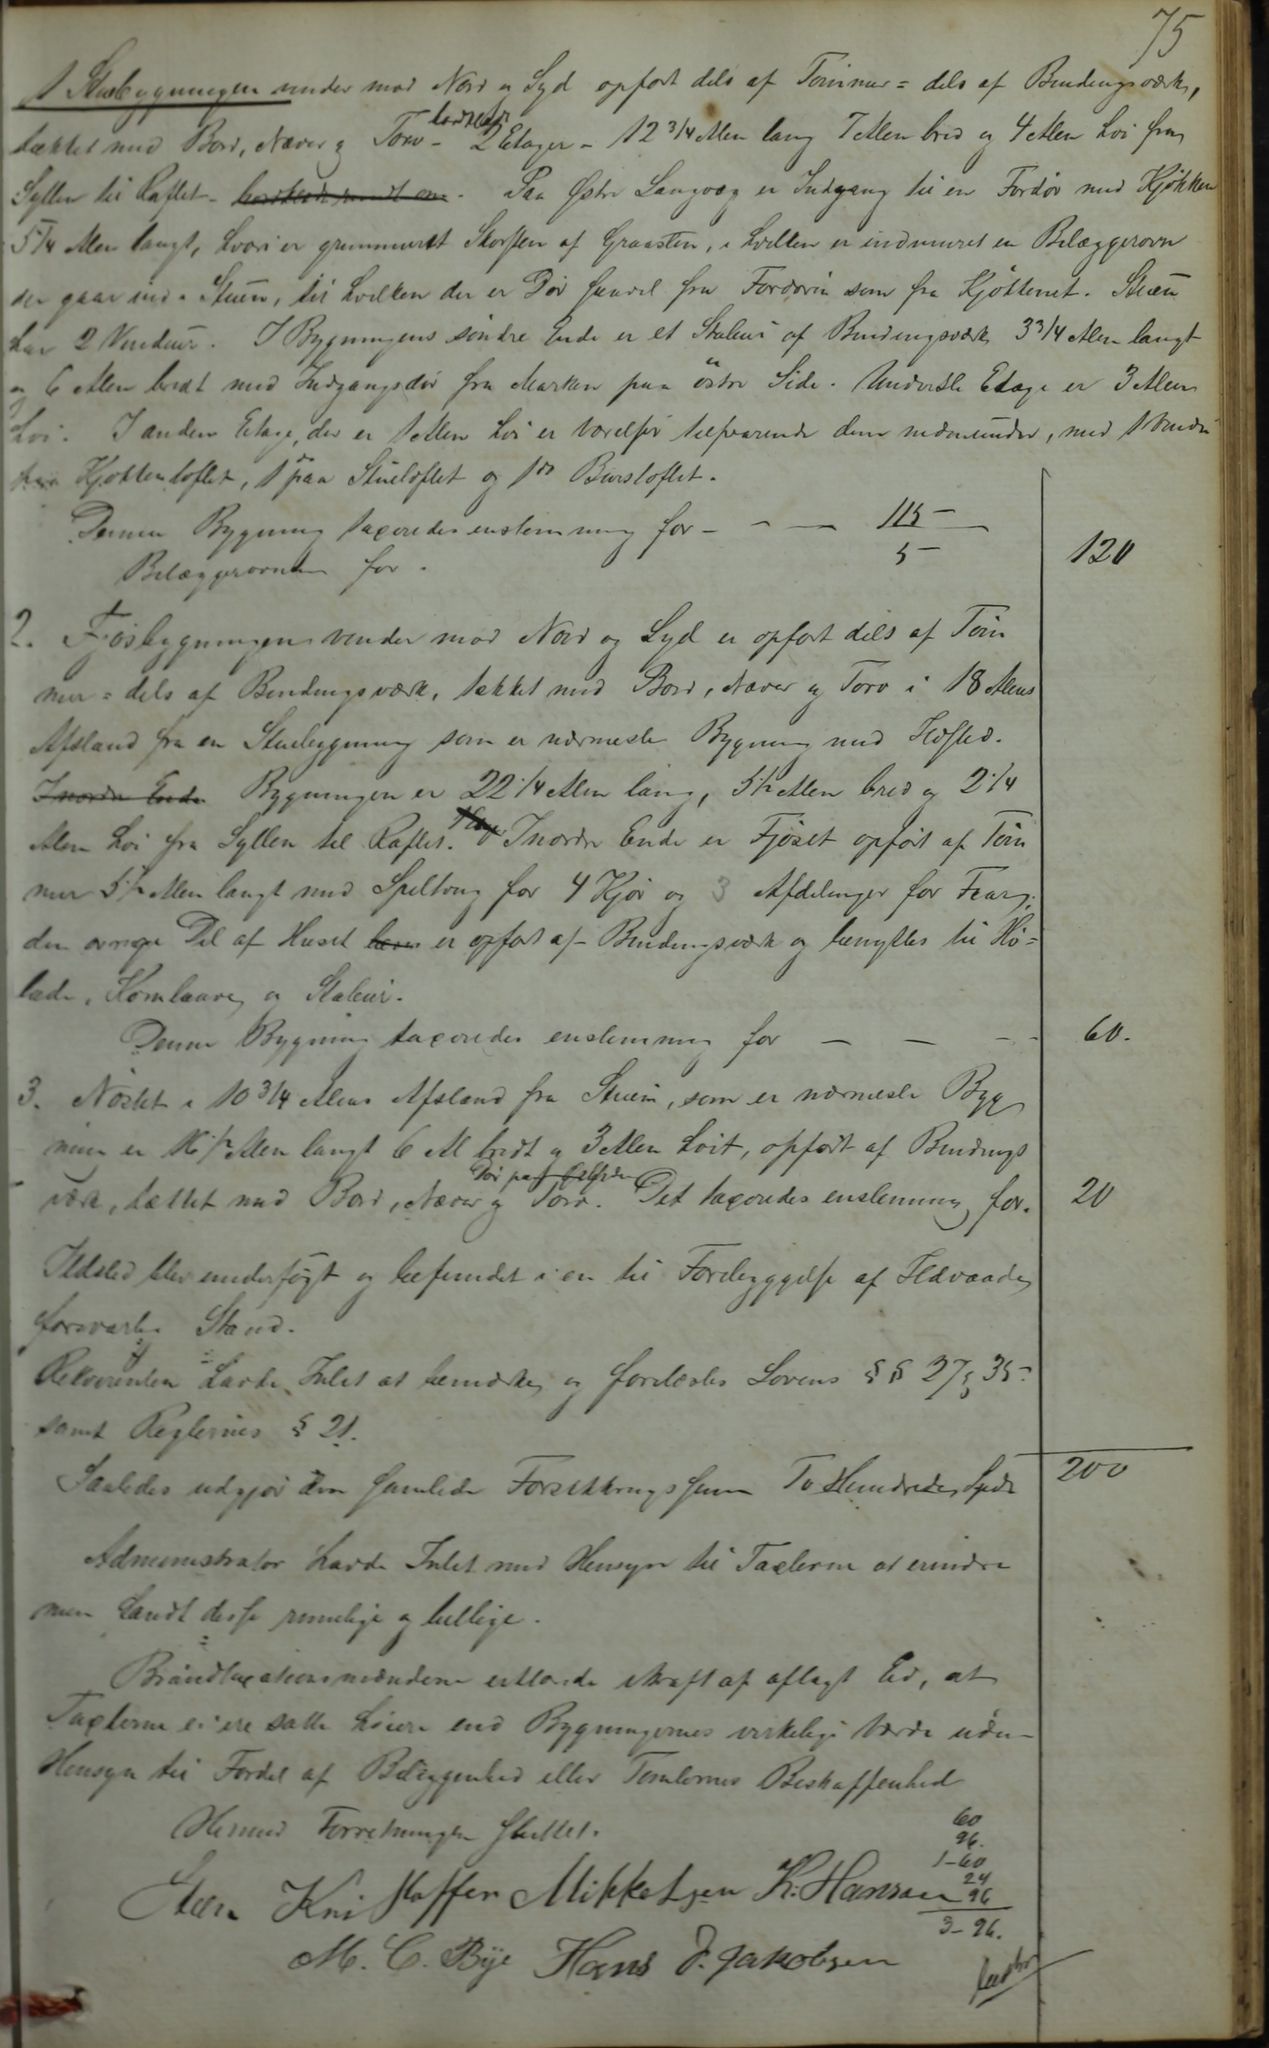 75
1 Stuebygningen vender mod Nord og Syd opført dels af Tømmer= dels af Bindingsværk,
tækket med Bord, Næver og Torv - bordklædt 2 Etager - 12 3/4 Alen lang 7 Alen bred og 4 Alen høi fra
Syllen til Raftet - bordklædt rundt om. Paa Østre Langvæg er Indgang til en Fordør med Kjøkken
5 1/4 Alen langt, hvori er grundmuret Skorsten af Graasten, i hvilken er indmuret en Bilæggerovn
der gaar ind i Stuen, til hvilken der er Dør saavel fra Fordøren som fra Kjøkkenet. Stuen
har 2 Vinduer. I Bygningens søndre Ende er et Stabur af Bindingsværk 3 3/4 Alen langt
og 6 Alen bredt med Indgangsdør fra Marken paa østre Side. Underste Etage er 3 Alen
høi. I anden Etage, der er 1 Alen høi er Værelser tilsvarende dem nedenunder, med 1 Vindu
paa Kjøkkenloftet, 1 paa Stueloftet og 1 do Bursloftet.
Denne Bygning taxeredes enstemmig for - - - 115 -
Bilæggerovnen for - 5 - 120
2. Fjøsbygningen vender mod Nord og Syd er opført dels af Tøm
mer = dels af Bindingsværk, tækket med Bord, Næver og Torv i 18 Alens
Afstand fra en Stuebygning som er nærmeste Bygning med Ildsted.
I nordre Ende Bygningen er 22 1/4 Alen lang, 5 1/2 Alen bred og 2 1/4
Alen høi fra Syllen til Raftet. I nordre Ende er Fjøset opført af Tøm
mer 5 1/2 Alen langt med Spiltoug for 4 Kjør og 3 Afdelinger for Faar,
den øvrige Del af Huset er opført af Bindingsværk og benyttes til Hø=
lade, Kornlaave og Stabur.
Denne Bygning taxeredes enstemmig for - - - 60.
3. Nøstet i 10 3/4 Alens Afstand fra Stuen, som er nærmeste Byg
ning er 16 1/2 Alen langt 6 Al bredt og 3 Alen høit, opført af Bindings
værk, tækket med Bord, Næver og Torv. Dør paa Det taxeredes enstemmig for. 20
Ildsted blev undersøgt og befundet i en til Forebyggelse af Ildvaade
forsvarlig Stand.
Rekvirenten havde Intet at bemærke og forelæstes Lovens §§ 27 og 35
samt Reglernes § 21.
Saaledes udgjør den samlede Forsikringssum To Hundrede Spd 200
Administrator havde Intet med Hensyn til Taxterne at erindre
men fandt disse rimelige og billige.
Brandtaxationsmændene erklærede i kraft af aflagt Ed, at
Taxterne ei ere satte høiere end Bygningernes virkelige Værdi uden
Hensyn til Fordel af Beliggenhed eller Tomternes Beskaffenhed
Hermed Forretningen sluttet.
60
96.
1-60
24
96
3-96.
Kristoffer Mikkelsen K. Hansen
M. C. Bye Hans J. Jakobsen